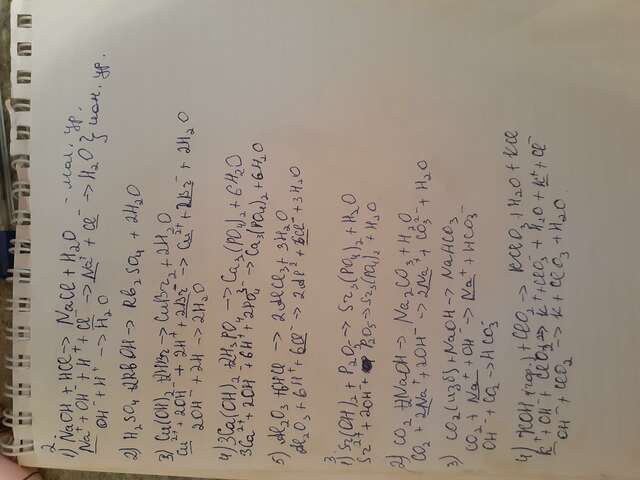 2.
1) NaOH + HCl → NaCl + H2O - мол. ур.
Na+ + OH- + H+ + Cl- → Na+ + Cl- → H2O } ион. ур.
OH- + H+ → H2O
2) H2SO4 + 2RbOH → Rb2SO4 + 2H2O
3) Cu(OH)2 + 2HBr → CuBr2 + 2H2O
Cu2+ + 2OH- + 2H+ + 2Br- → Cu2+ + 2Br- + 2H2O
2OH- + 2H → 2H2O
4) 3Ca(OH)2 + 2H3PO4 → Ca3(PO4)2 + 6H2O
3Ca2+ + 2OH + 6H+ + 2PO4 → Ca3(PO4)2 + 6H2O
5) Al2O3 + 6HCl → 2AlCl3 + 3H2O
Al2O3 + 6H+ + 6Cl- → 2Al3+ + 6Cl- + 3H2O
3.
1) Sr(OH)2 + P2O5 → Sr3(PO4)2 + H2O
Sr2+ + 2OH- + P2O5 → Sr3(PO4)2 + H2O
2) CO2 + 2NaOH → Na2CO3 + H2O
CO2 + 2Na+ + 2OH- → 2Na+ + CO3 2- + H2O
3) CO2 (изб) + NaOH → NaHCO3
CO2 + Na+ + OH → Na+ + HCO3-
OH- + CO2 → HCO3-
4) KOH + ClO2 → KClO3 + H2O + KCl
K+ + OH- + ClO2 → K+ + ClO3- + H2O + K+ + Cl-
OH- + ClO2 → K + ClO3 + H2O